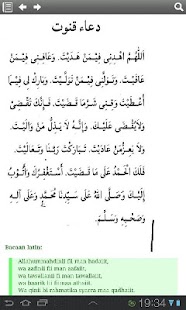 دعاء قنوت
اَللّٰهُمَّ اهْدِنِيْ فِيْمَنْ هَدَيْتَ. وَعَافِنِيْ فِيْمَنْ
عَافَيْتَ. وَتَوَلَّنِيْ فِيْمَنْ تَوَلَّيْتَ. وَبَارِكْ لِيْ فِيْمَا
أَعْطَيْتَ وَقِنِيْ شَرَّمَا قَضَيْتَ. فَإِنَّكَ تَقْضِيْ
وَلَايُقْضَى عَلَيْكَ. وَإِنَّهُ لَايَذِلُّ مَنْ وَالَيْتَ.
وَلَايَعِزُّمَنْ عَادَيْتَ. تَبَارَكْتَ رَبَّنَا وَتَعَالَيْتَ.
فَلَكَ الْحَمْدُ عَلَى مَا قَضَيْتَ. أَسْتَغْفِرُكَ وَأَتُوْبُ
إِلَيْكَ وَصَلَّى اللهُ عَلَى سَيِّدِنَا مُحَمَّدٍ وَعَلَى آلِهِ
وَصَحْبِهِ وَسَلَّمَ.
Bacaan latin:
fii man hadaiit,
wa aafinii fii man aafaiit,
wa tawallanii fii man tawallaiit,
wa baarik lii fiimaa
Wa qinii
19:34